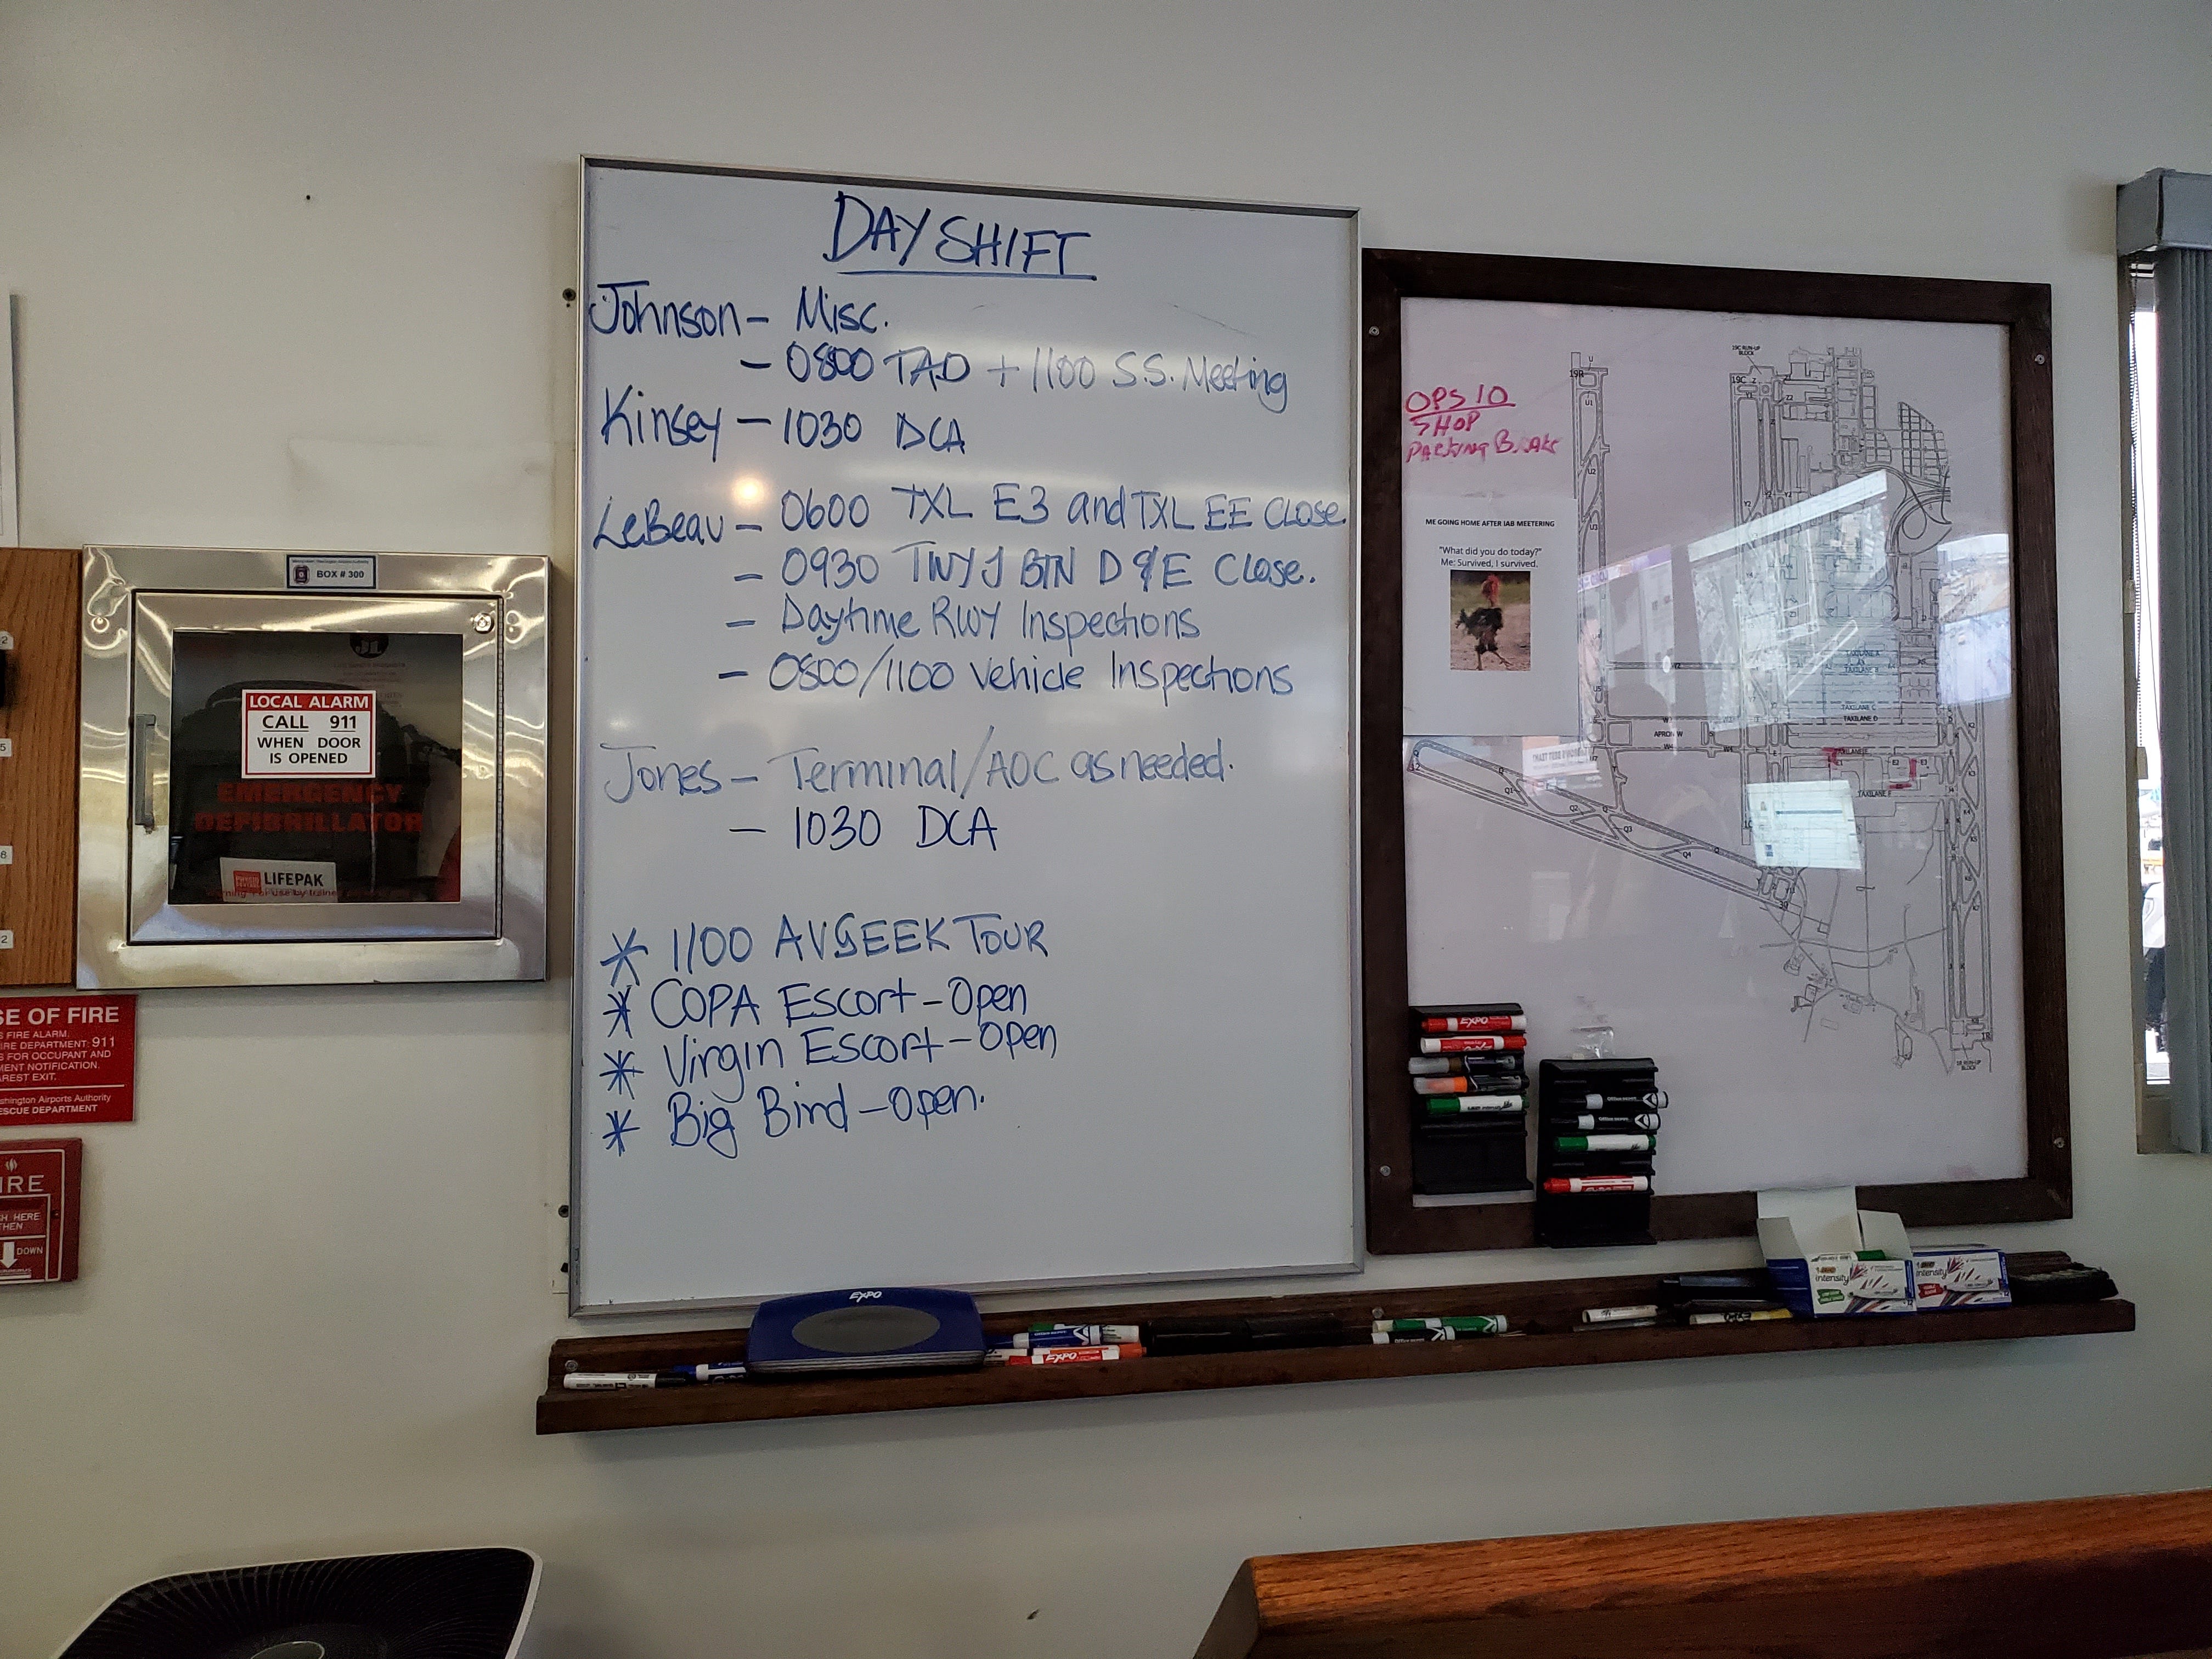 DAY SHIFT
Johnson - Misc.
- 0800 TAD + 1100 S.S. Meeting
Kinsey - 1030 DCA
LeBeau - 0600 TXL E3 and TXL EE Close.
- 0930 TWY J BTN D & E Close.
- Daytime RWY Inspections
- 0800/1100 Vehicle Inspections
Jones - Terminal/AOC as needed.
- 1030 DCA
* 1100 AVGEEK TOUR
* COPA Escort - Open
* Virgin Escort - Open
* Big Bird - Open.
OPS 10
SHOP
ME GOING HOME AFTER IAB MEETERING
"What did you do today?"
Me: Survived, I survived.
19C RUN-UP
BLOCK
19R
19C
U
U1
Z
Y2
APRON W
W
W4
TAXILANE C
TAXILANE D
TAXILANE F
Q
12
Q1
Q2
Q3
Q4
30
K2
BOX # 300
LOCAL ALARM
CALL 911
WHEN DOOR
IS OPENED
EMERGENCY
DEFIBRILLATOR
LIFEPAK
SE OF FIRE
FIRE ALARM.
IRE DEPARTMENT: 911
S FOR OCCUPANT AND
MENT NOTIFICATION.
AREST EXIT.
shington Airports Authority
ESCUE DEPARTMENT
IRE
H HERE
THEN
DOWN
EXPO
EXPO
EXPO
BIC
intensity
BIC
intensity